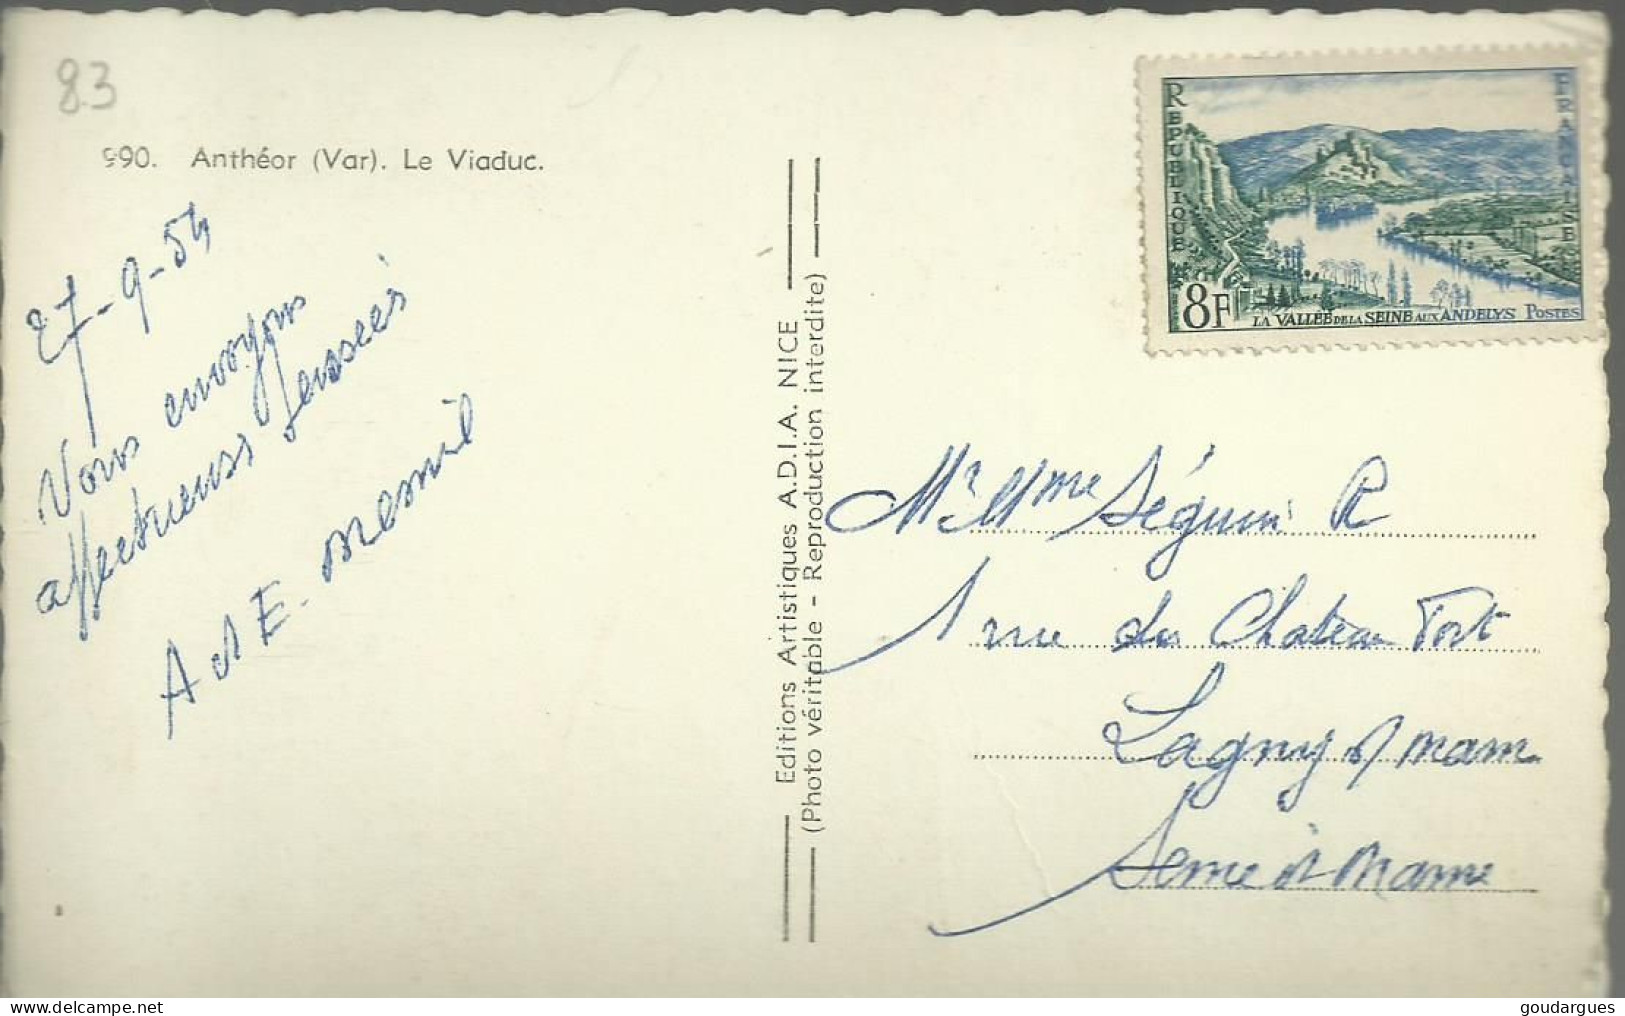 83
990. Anthéor (Var). Le Viaduc.
27-9-54
Vous envoyons
affectueuses pensées
A et E. Mesmil
Editions Artistiques A.D.I.A. NICE
(Photo véritable - Reproduction interdite)
REPUBLIQUE
FRANÇAISE
8F
LA VALLÉE DE LA SEINE AUX ANDELYS POSTES
Mr Mme Séguin R
1 rue du Chateau Fort
Lagny s/ marne
Seine et Marne
www.delcampe.net
goudargues